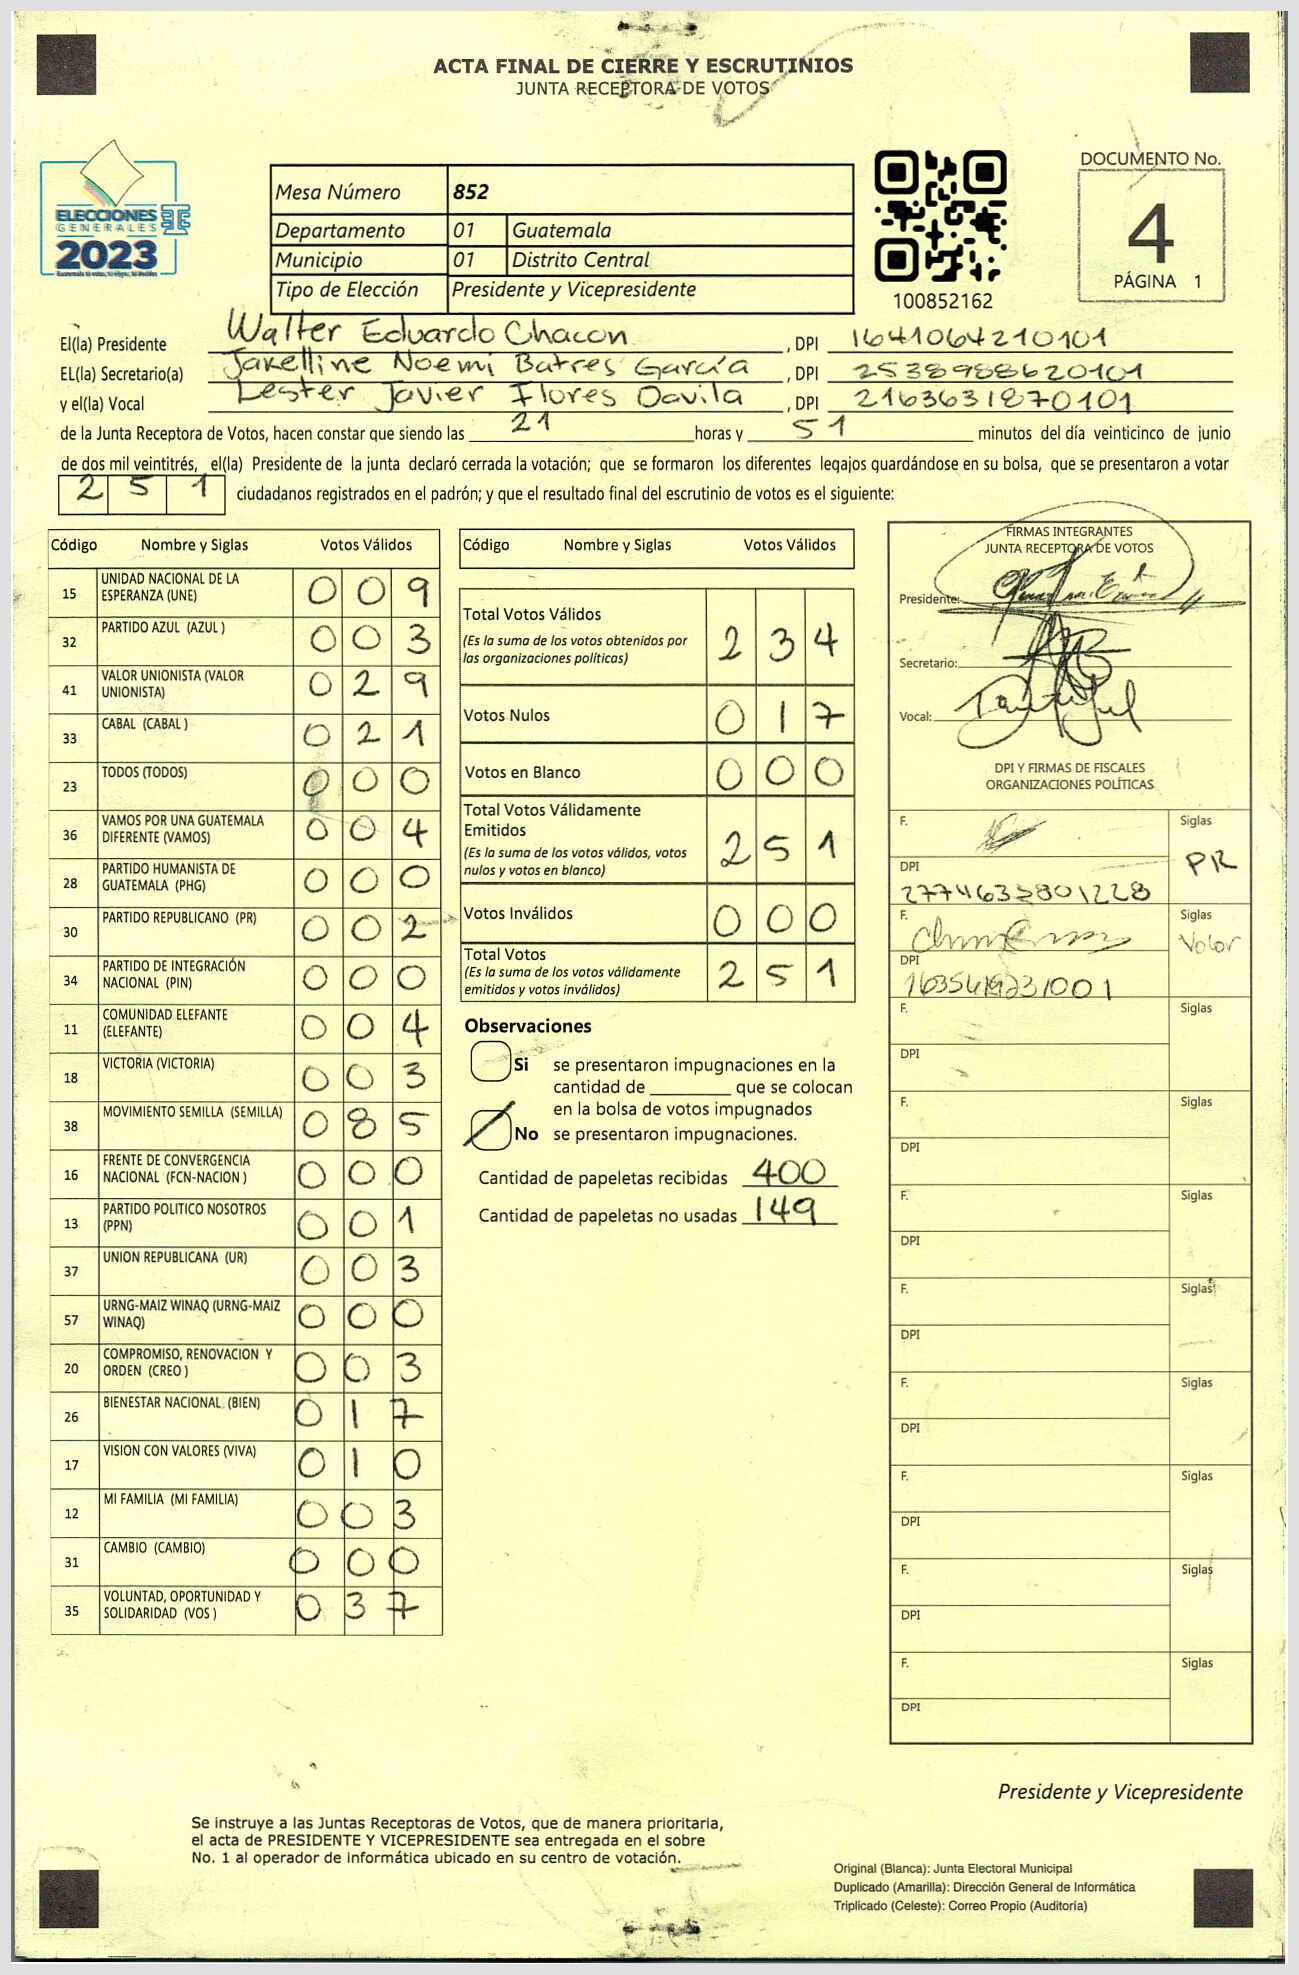 ACTA FINAL DE CIERRE Y ESCRUTINIOS
JUNTA RECEPTORA DE VOTOS
ELECCIONES
GENERALES
2023
Mesa Número 852
Departamento 01 Guatemala
Municipio 01 Distrito Central
Tipo de Elección Presidente y Vicepresidente
100852162
DOCUMENTO No.
4
PÁGINA 1
El(la) Presidente Walter Eduardo Chacon, DPI 1641064210101
EL(la) Secretario(a) Jakelline Noemi Batres García, DPI 2538988620101
y el(la) Vocal Lester Javier Flores Davila, DPI 2163631870101
de la Junta Receptora de Votos, hacen constar que siendo las 21 horas y 51 minutos del día veinticinco de junio
de dos mil veintitrés, el(la) Presidente de la junta declaró cerrada la votación; que se formaron los diferentes legajos guardándose en su bolsa, que se presentaron a votar
251 ciudadanos registrados en el padrón; y que el resultado final del escrutinio de votos es el siguiente:
Código Nombre y Siglas Votos Válidos
15 UNIDAD NACIONAL DE LA
ESPERANZA (UNE) 009
32 PARTIDO AZUL (AZUL ) 003
41 VALOR UNIONISTA (VALOR
UNIONISTA) 029
33 CABAL (CABAL ) 021
23 TODOS (TODOS) 000
36 VAMOS POR UNA GUATEMALA
DIFERENTE (VAMOS) 004
28 PARTIDO HUMANISTA DE
GUATEMALA (PHG) 000
30 PARTIDO REPUBLICANO (PR) 002
34 PARTIDO DE INTEGRACIÓN
NACIONAL (PIN) 000
11 COMUNIDAD ELEFANTE
(ELEFANTE) 004
18 VICTORIA (VICTORIA) 003
38 MOVIMIENTO SEMILLA (SEMILLA) 085
16 FRENTE DE CONVERGENCIA
NACIONAL (FCN-NACION ) 000
13 PARTIDO POLITICO NOSOTROS
(PPN) 001
37 UNION REPUBLICANA (UR) 003
57 URNG-MAIZ WINAQ (URNG-MAIZ
WINAQ) 000
20 COMPROMISO, RENOVACION Y
ORDEN (CREO ) 003
26 BIENESTAR NACIONAL (BIEN) 017
17 VISION CON VALORES (VIVA) 010
12 MI FAMILIA (MI FAMILIA) 003
31 CAMBIO (CAMBIO) 000
35 VOLUNTAD, OPORTUNIDAD Y
SOLIDARIDAD (VOS ) 037
Código Nombre y Siglas Votos Válidos
Total Votos Válidos 234
(Es la suma de los votos obtenidos por
las organizaciones políticas)
Votos Nulos 017
Votos en Blanco 000
Total Votos Válidamente
Emitidos 251
(Es la suma de los votos válidos, votos
nulos y votos en blanco)
Votos Inválidos 000
Total Votos 251
(Es la suma de los votos válidamente
emitidos y votos inválidos)
Observaciones
Si se presentaron impugnaciones en la
cantidad de ________ que se colocan
en la bolsa de votos impugnados
No se presentaron impugnaciones.
Cantidad de papeletas recibidas 400
Cantidad de papeletas no usadas 149
FIRMAS INTEGRANTES
JUNTA RECEPTORA DE VOTOS
Presidente:
Secretario:
Vocal:
DPI Y FIRMAS DE FISCALES
ORGANIZACIONES POLÍTICAS
F. Siglas
PR
DPI
F. Siglas
Valor
DPI
F. Siglas
DPI
F. Siglas
DPI
F. Siglas
DPI
F. Siglas
DPI
F. Siglas
DPI
F. Siglas
DPI
F. Siglas
DPI
F. Siglas
DPI
Presidente y Vicepresidente
Se instruye a las Juntas Receptoras de Votos, que de manera prioritaria,
el acta de PRESIDENTE Y VICEPRESIDENTE sea entregada en el sobre
No. 1 al operador de informática ubicado en su centro de votación.
Original (Blanca): Junta Electoral Municipal
Duplicado (Amarilla): Dirección General de Informática
Triplicado (Celeste): Correo Propio (Auditoría)